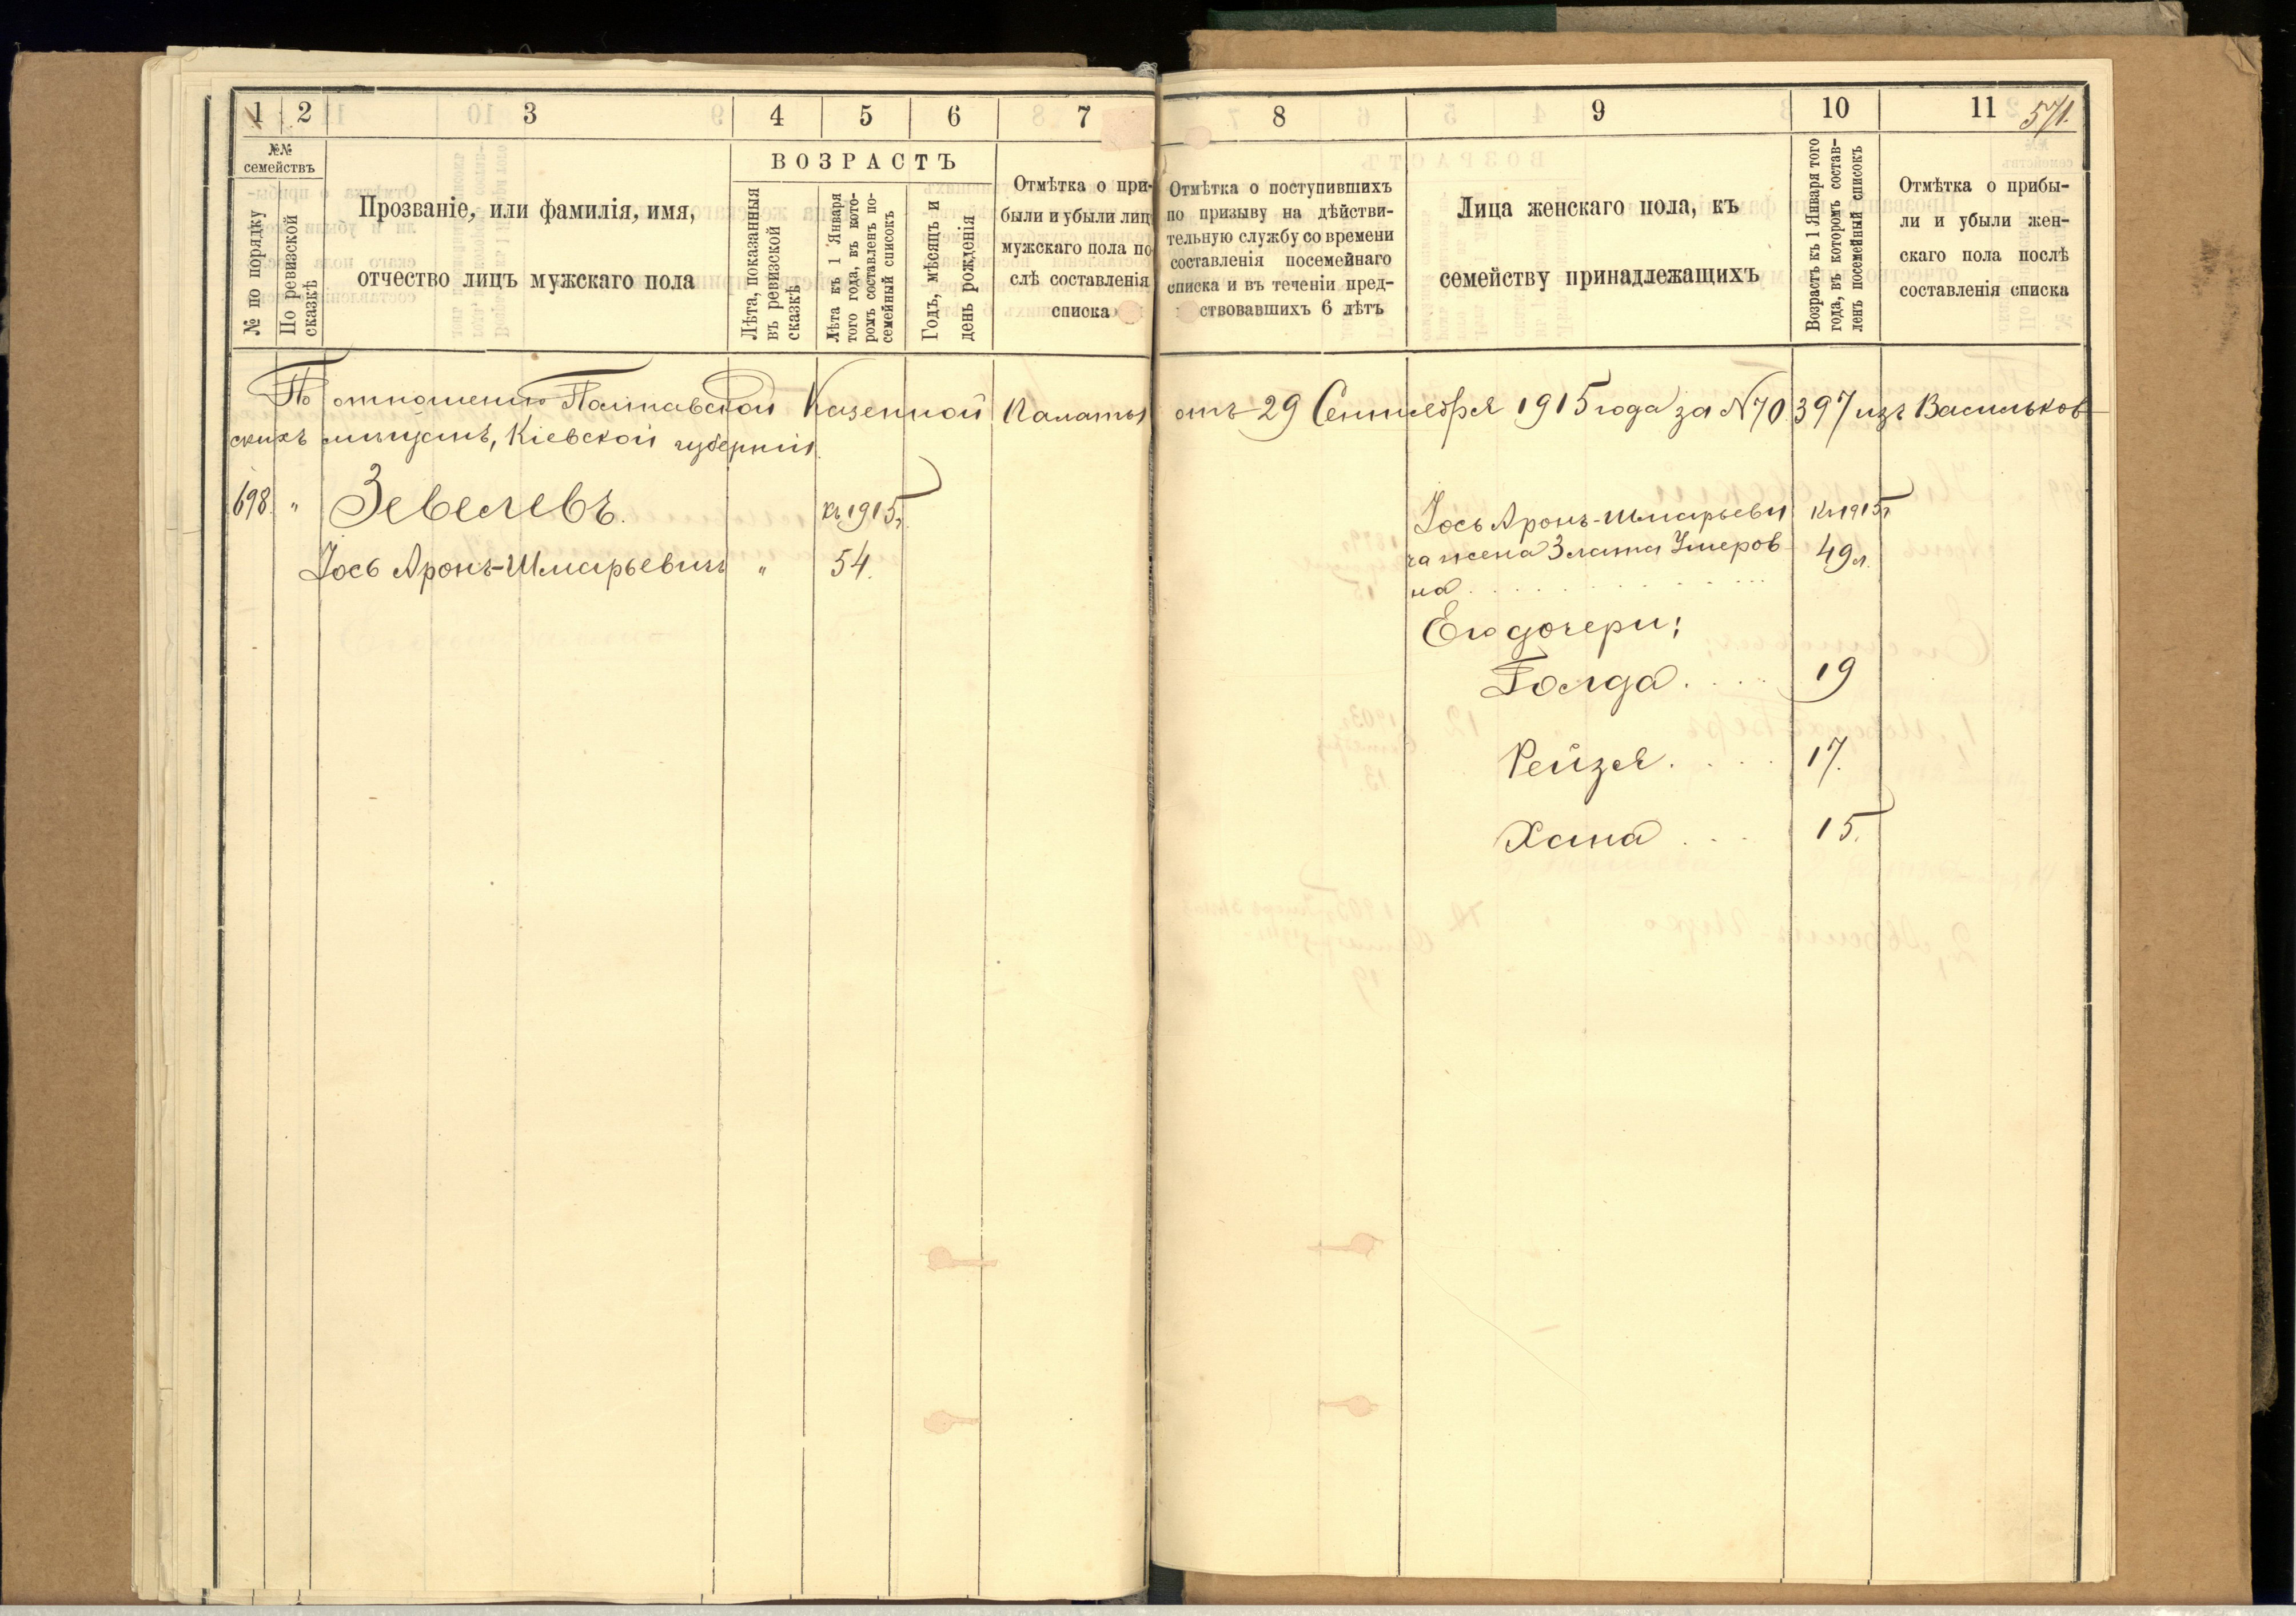 1 2 3 4 5 6 7
№№ семействъ
№ по порядку
По ревизской сказкѣ
Прозваніе, или фамилія, имя,
отчество лицъ мужскаго пола
ВОЗРАСТЪ
Лѣта, показанныя
въ ревизской
сказкѣ
Лѣта къ 1 Января
того года, въ кото-
ромъ составленъ по-
семейный списокъ
Годъ, мѣсяцъ и
день рожденія
Отмѣтка о при-
были и убыли лиц
мужскаго пола по
слѣ составленія
списка
8 9 10 11
571.
Отмѣтка о поступившихъ
по призыву на дѣйстви-
тельную службу со времени
составленія посемейнаго
списка и въ теченіи пред-
ствовавшихъ 6 лѣтъ
Лица женскаго пола, къ
семейству принадлежащихъ
Возрастъ къ 1 Января того
года, въ которомъ состав-
ленъ посемейный списокъ
Отмѣтка о прибы-
ли и убыли жен-
скаго пола послѣ
составленія списка
По отношенію Полтавской Казенной Палаты отъ 29 Сентября 1915 года за N 70397 изъ Васильков-
скихъ мѣщанъ, Кіевской губерніи.
698. " Зевелевъ. къ 1915 г.
Іось Аронъ-Шмарьевичъ " 54.
Іось Аронъ-Шмарьеви къ 1915 г
ча жена Злата Умеров 49 л.
на
Его дочери:
Голда 19
Рейзя 17.
Хана 15.